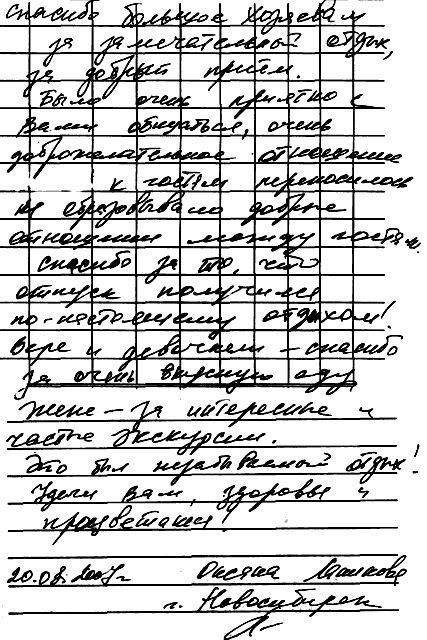 Спасибо большое хозяевам
за замечательный отдых,
за добрый приём.
Было очень приятно с
Вами общаться, очень
доброжелательное отношение
к гостям переносилось
и образовывало добрые
отношения между гостями.
Спасибо за то, что
отпуск получился
по-настоящему отдыхом!
Вере и девочкам - спасибо
за очень вкусную еду,
Жене - за интересные и
частые экскурсии.
Это был незабываемый отдых!
Удачи Вам, здоровья и
процветания!
20.08.2007г Оксана
г. Новосибирск